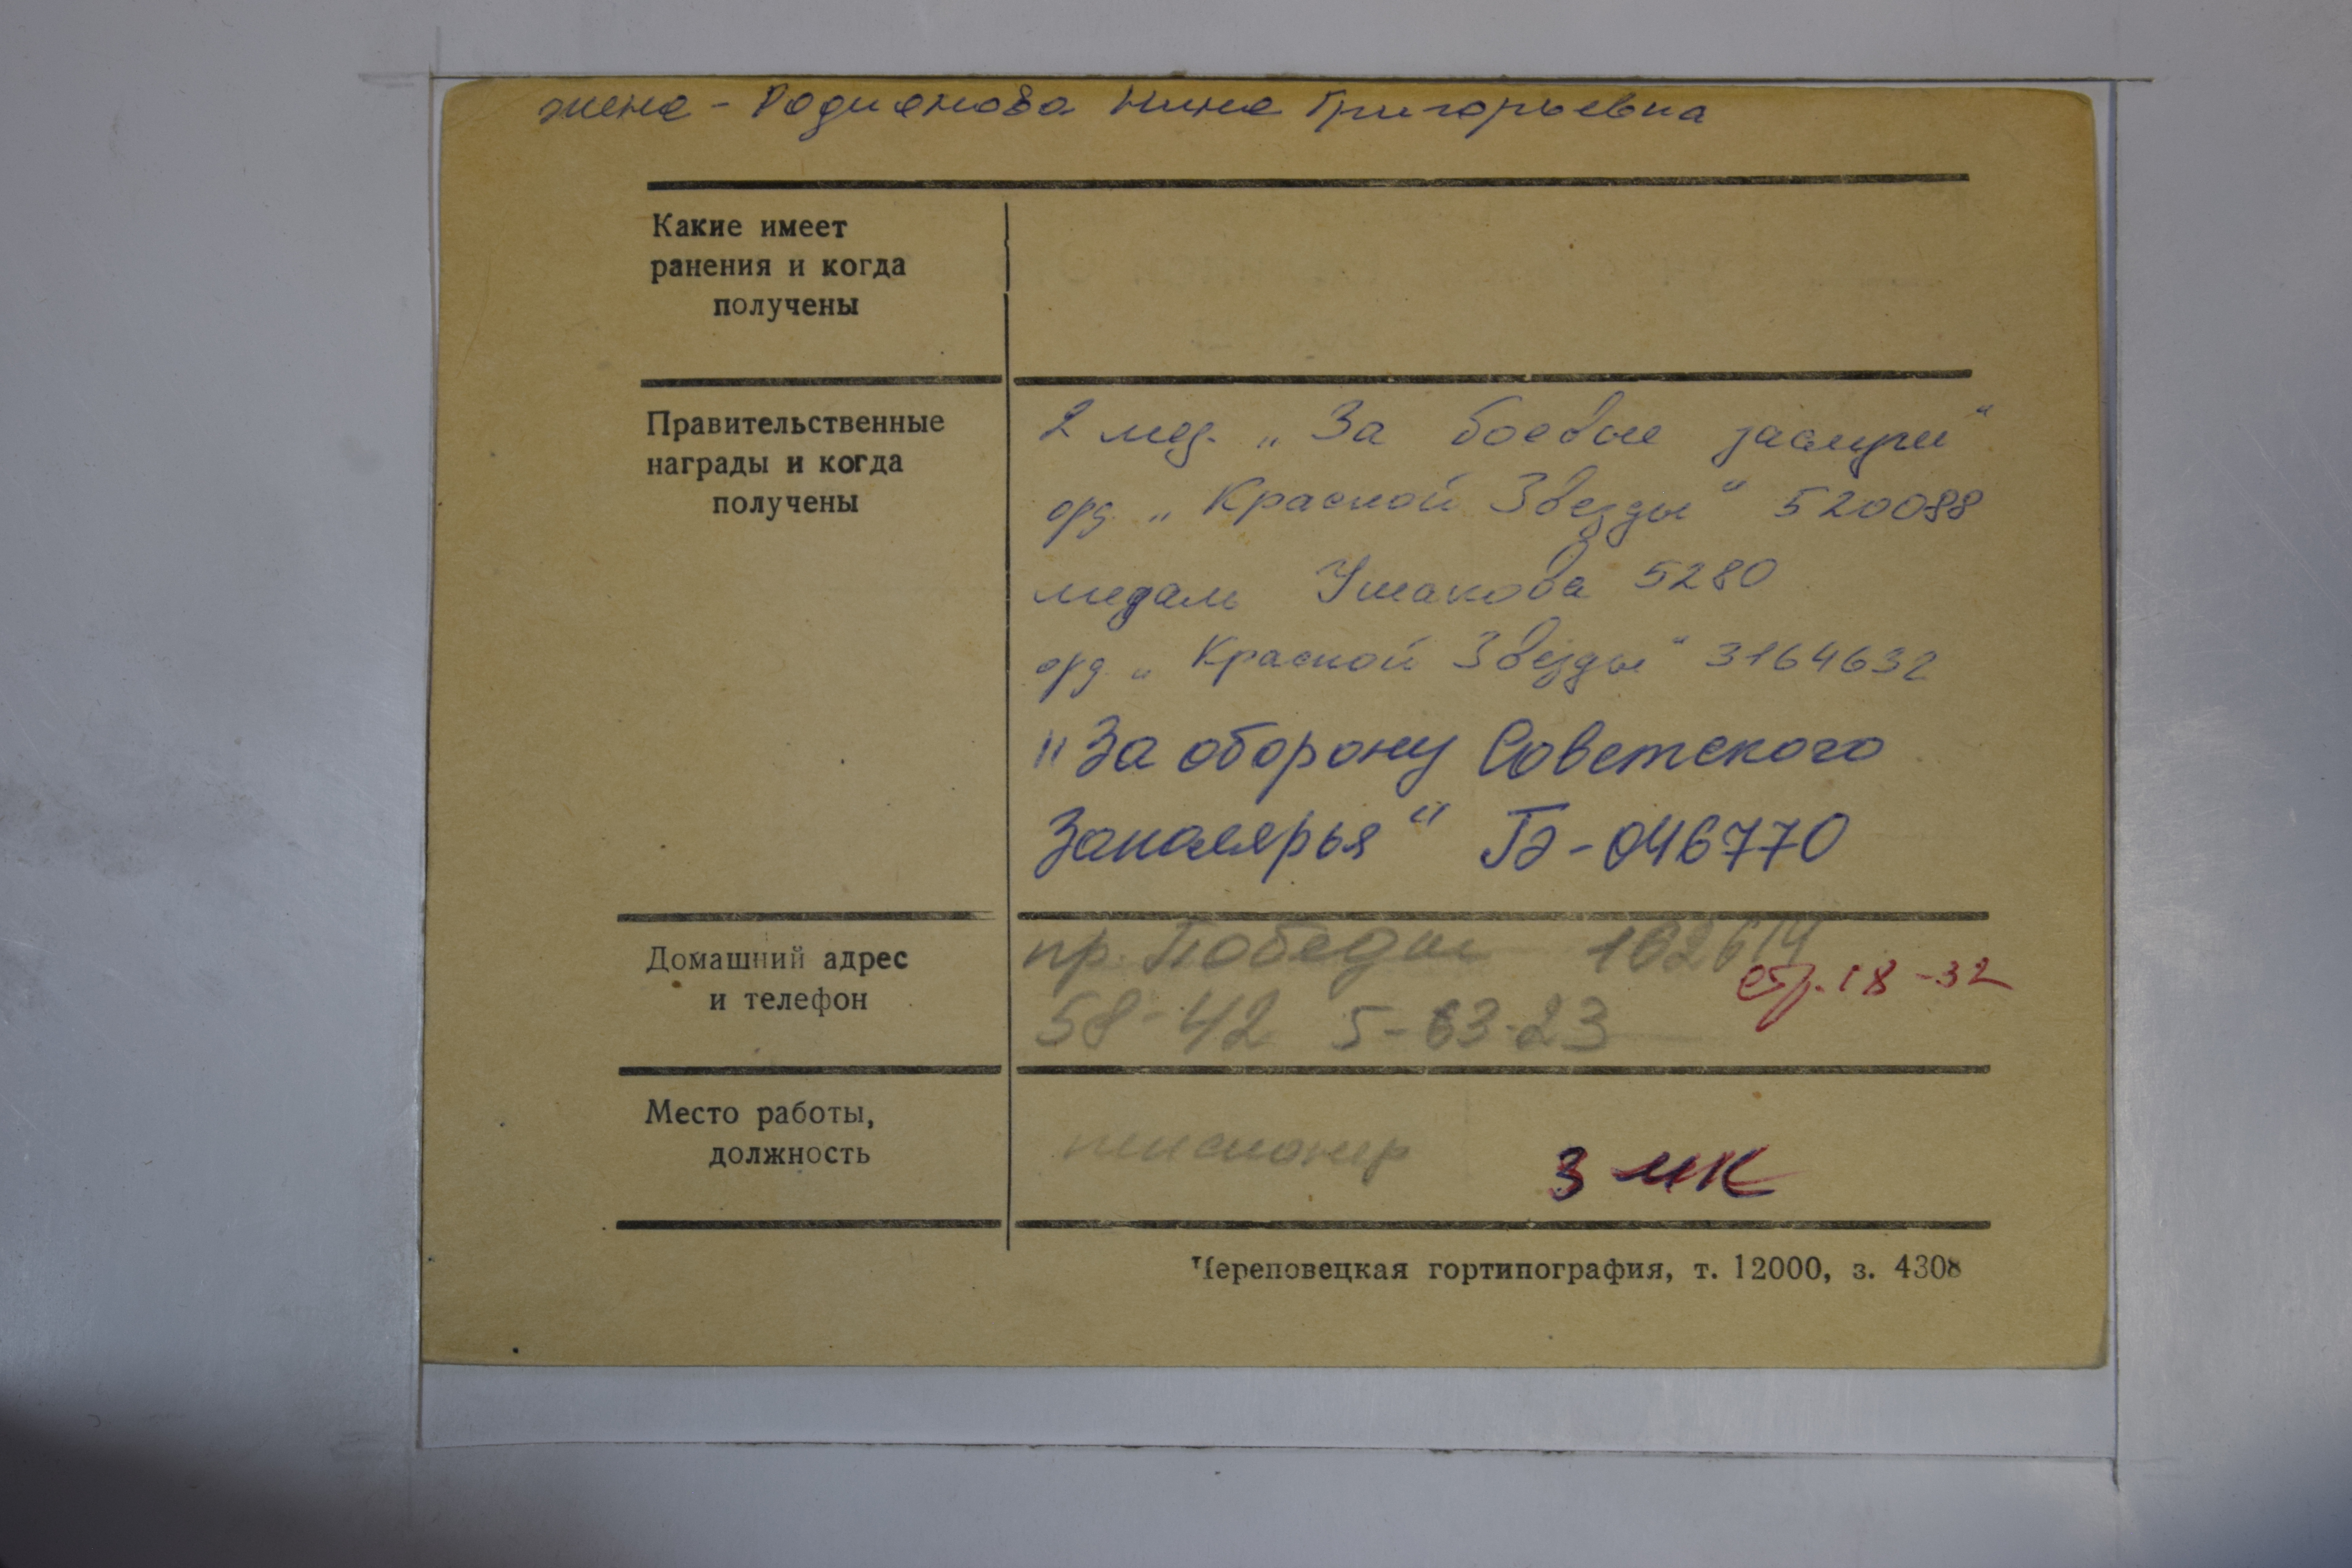 жена - Родионова Нина Григорьевна
Какие имеет
ранения и когда
получены
Правительственные
награды и когда
получены
2 мед. „За боевые заслуги"
орд. „Красной Звезды" 520088
медаль Ушакова 5280
орд. „Красной Звезды" 3164632
"За оборону Советского
Заполярья" ГЭ-046770
Домашний адрес
и телефон
пр. Победы 162614
58-42 5-63-23
18-32
Место работы,
должность
пенсионер
3 МК
Череповецкая гортипография, т. 12000, з. 4308